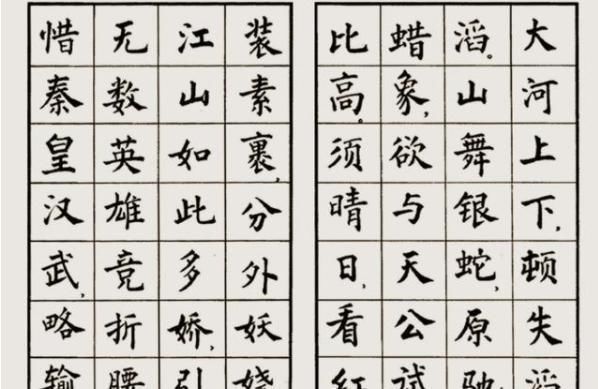 大河上下,顿失滔
滔。山舞银蛇,原驰
蜡象,欲与天公试
比高。须晴日,看红
装素裹,分外妖娆
江山如此多娇,引
无数英雄竞折腰
惜秦皇汉武,略输